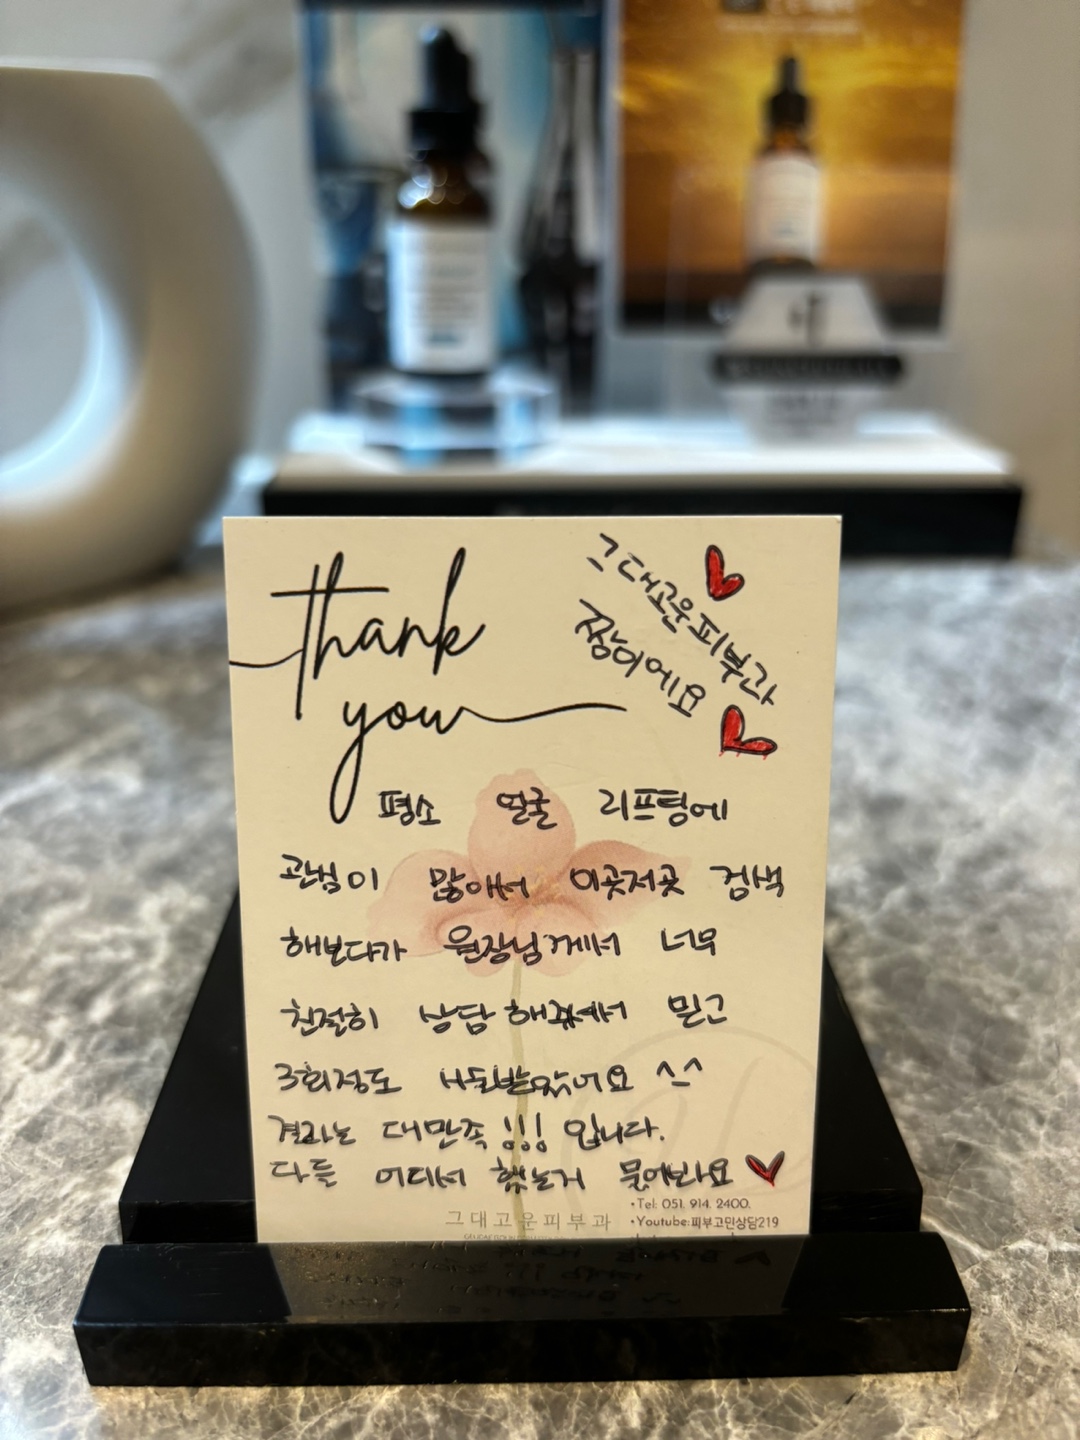 thank
you
그대고운피부과
짱이에요
평소 얼굴 리프팅에
관심이 많아서 이곳저곳 검색
해보다가 원장님께서 너무
친절히 상담해주셔서 믿고
3회정도 시술받았어요 ^_^
결과는 대만족 !!! 입니다.
다들 어디서 했는거 물어봐요
그대고운피부과
•Tel: 051. 914. 2400.
•Youtube:피부고민상담219